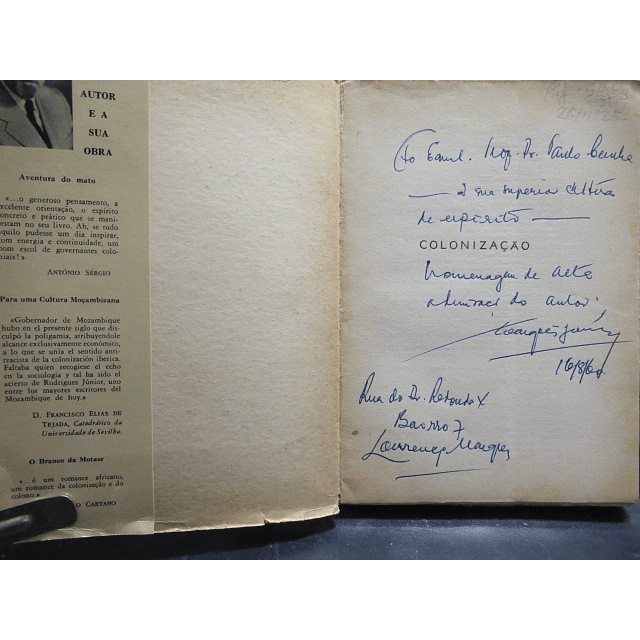 AUTOR
E A
SUA
OBRA
Aventura do mato
«...o generoso pensamento, a
excelente orientação, o espírito
concreto e prático que se mani-
festam no seu livro. Ah, se tudo
aquilo pudesse um dia inspirar,
com energia e continuidade, um
bom escol de governantes colo-
niais!»
ANTÓNIO SÉRGIO
Para uma Cultura Moçambicana
«Gobernador de Mozambique
hubo en el presente siglo que dis-
culpó la poligamia, atribuyendole
alcance exclusivamente económico,
a lo que se unía el sentido anti-
-racista de la colonización ibérica.
Faltaba quien recogiese el echo
en la sociologia y tal ha sido el
acierto de Rodrigues Júnior, uno
entre los mayores escritores del
Mozambique de hoy.»
D. FRANCISCO ELIAS DE
TEJADA, Catedrático da
Universidade de Sevilha.
O Branco da Motase
«... é um romance africano,
um romance da colonização e do
colono.»
CAETANO
Ao Exmº. Prof. Dr. Paulo Cunha
— à sua superior cultura
de espírito —
COLONIZAÇÃO
homenagem de alta
do autor
Rodrigues Júnior
Rua do Dr.
Bairro 7
Lourenço Marques